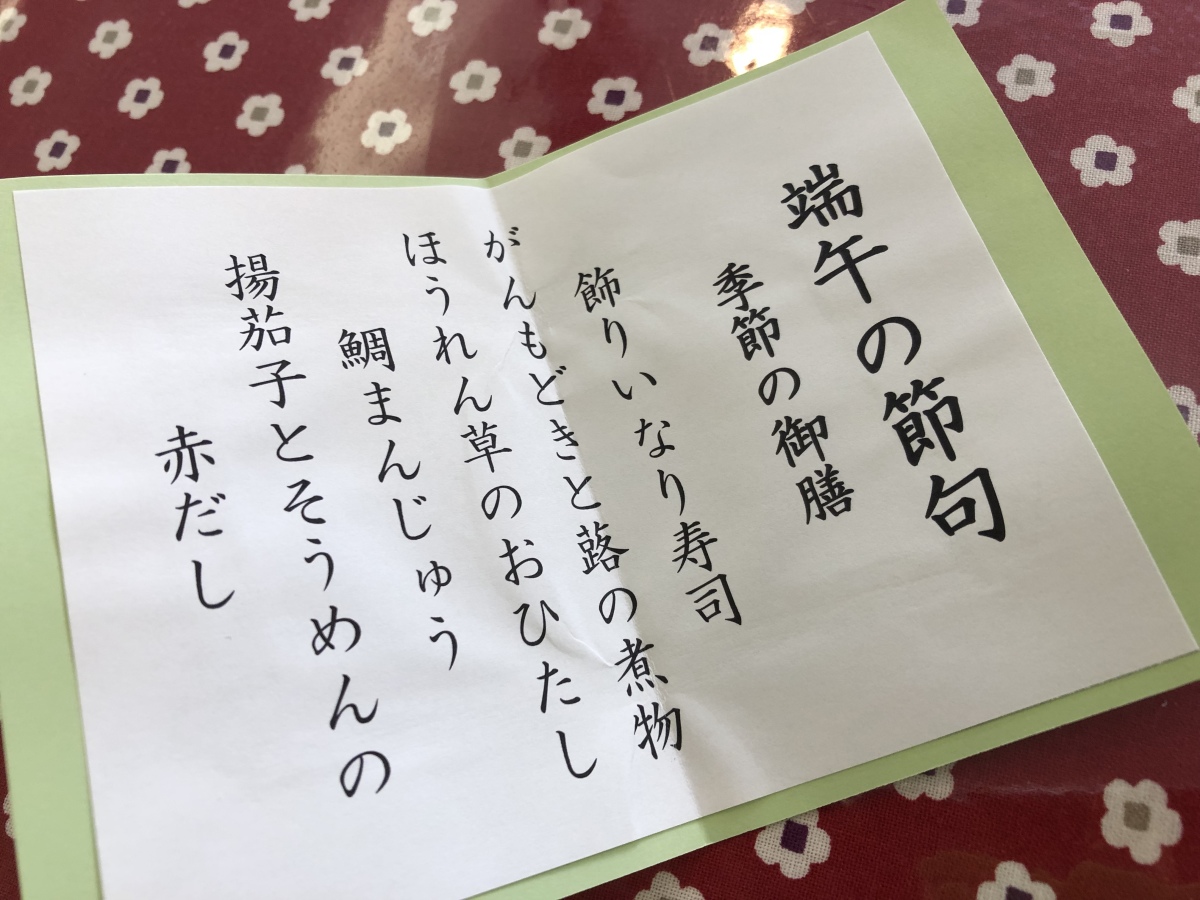 端午の節句
季節の御膳
飾りいなり寿司
がんもどきと蕗の煮物
ほうれん草のおひたし
鯛まんじゅう
揚茄子とそうめんの
赤だし